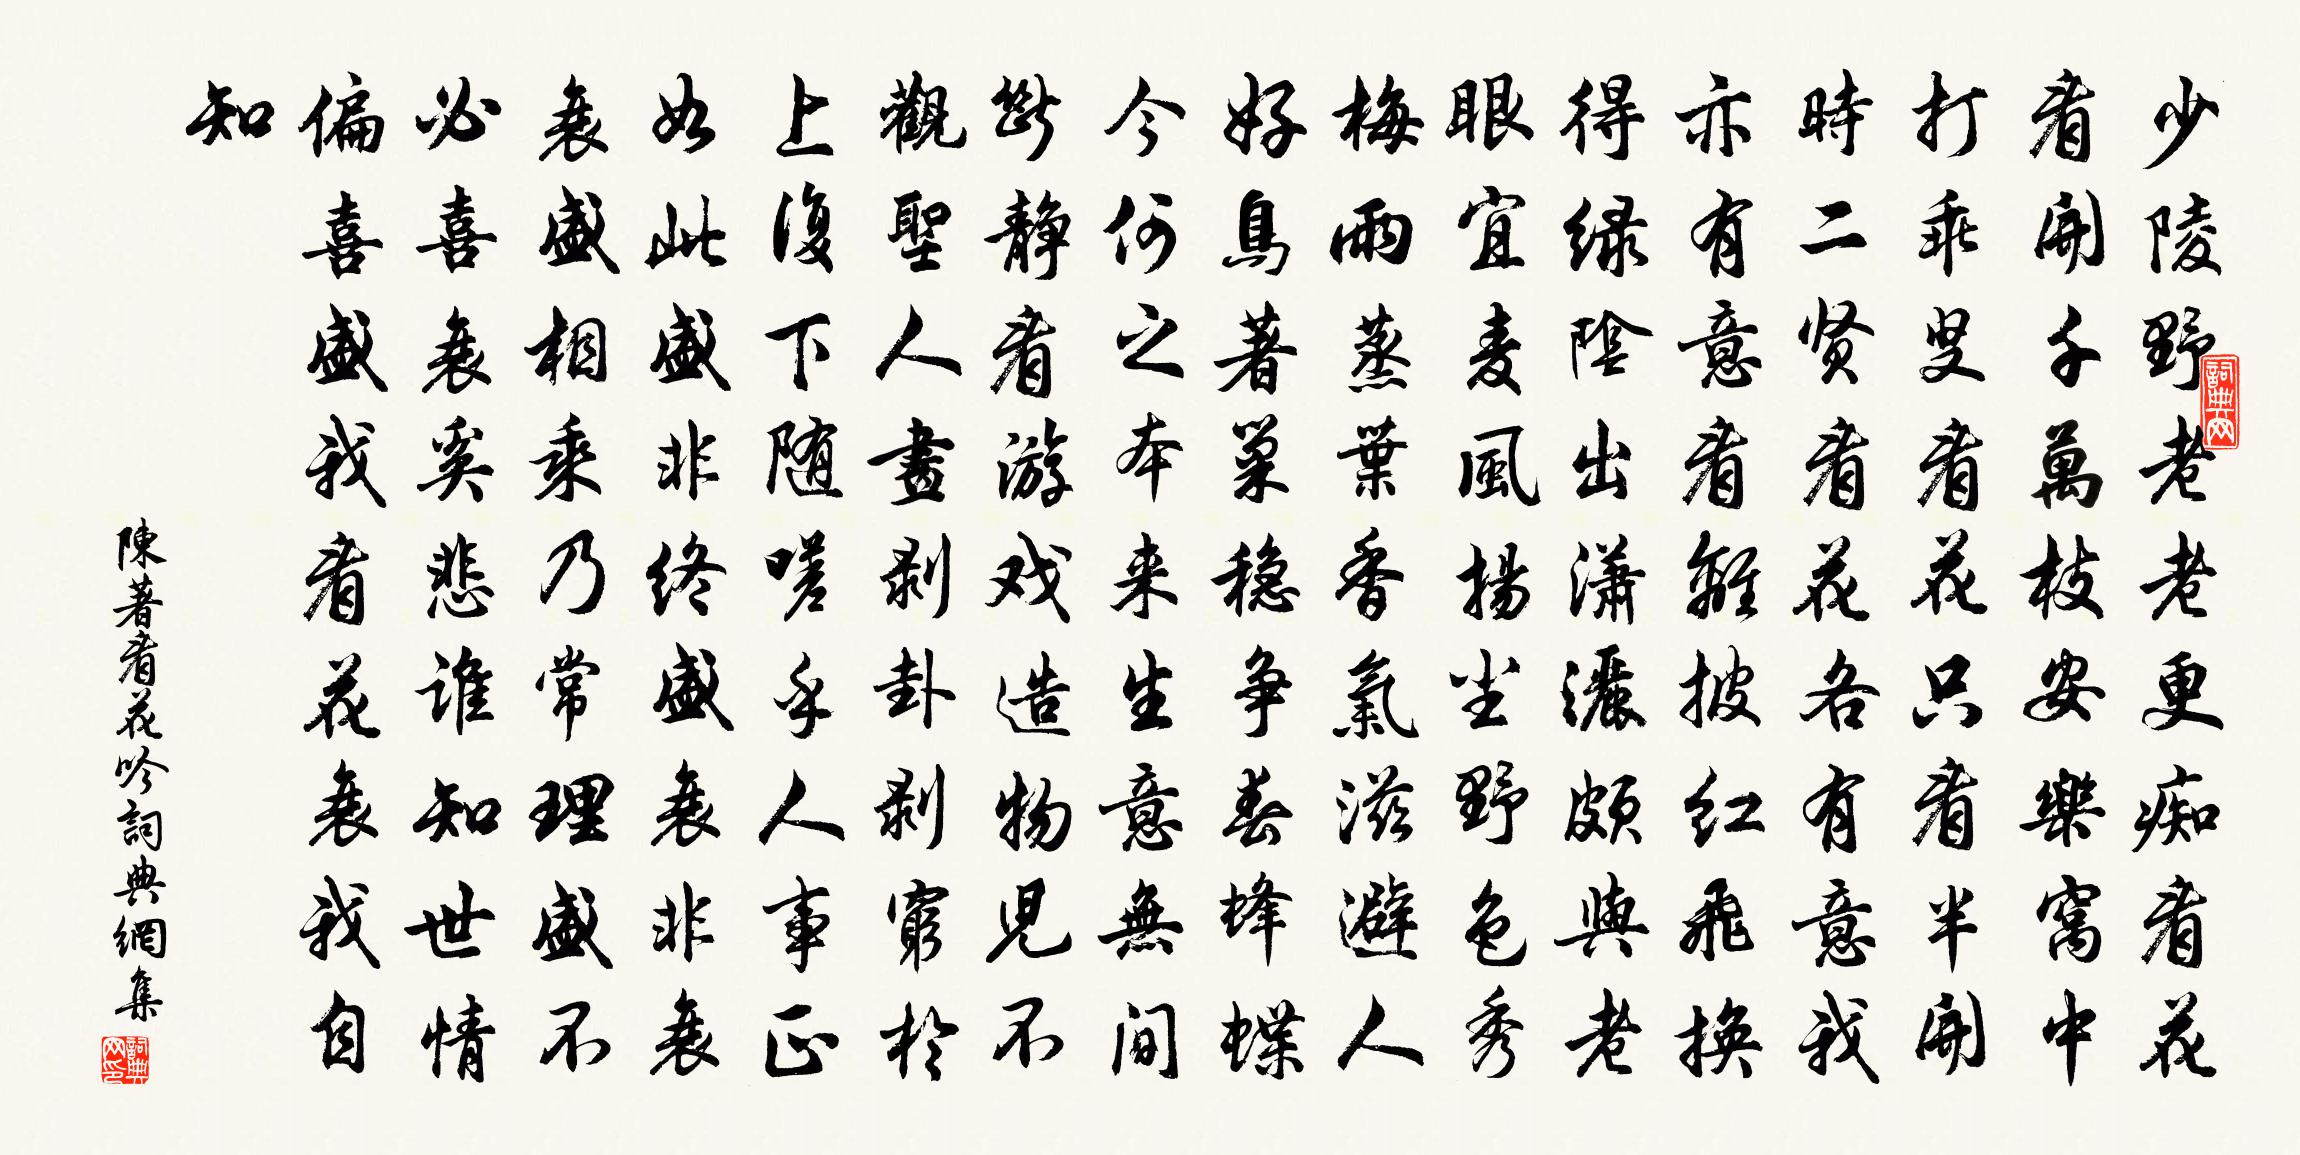 少陵野老老更痴看花
看開千萬枝安樂窩中
打乖叟看花只看半開
時二贤看花各有意我
亦有意看離披红飛換
得绿陰出潇灑頗與老
眼宜麦風揚尘野色秀
梅雨蒸葉香氣滋避人
好鳥著巢穏争春蜂蝶
今何之本来生意無間
斷静看游戏造物児不
觀聖人畫剥卦剥窮於
上復下随嗟乎人事正
如此盛非终盛衰非衰
衰盛相乘乃常理盛不
必喜衰奚悲谁知世情
偏喜盛我看花衰我自
知
陳著看花吟詞典網集
詞典网
詞典网印